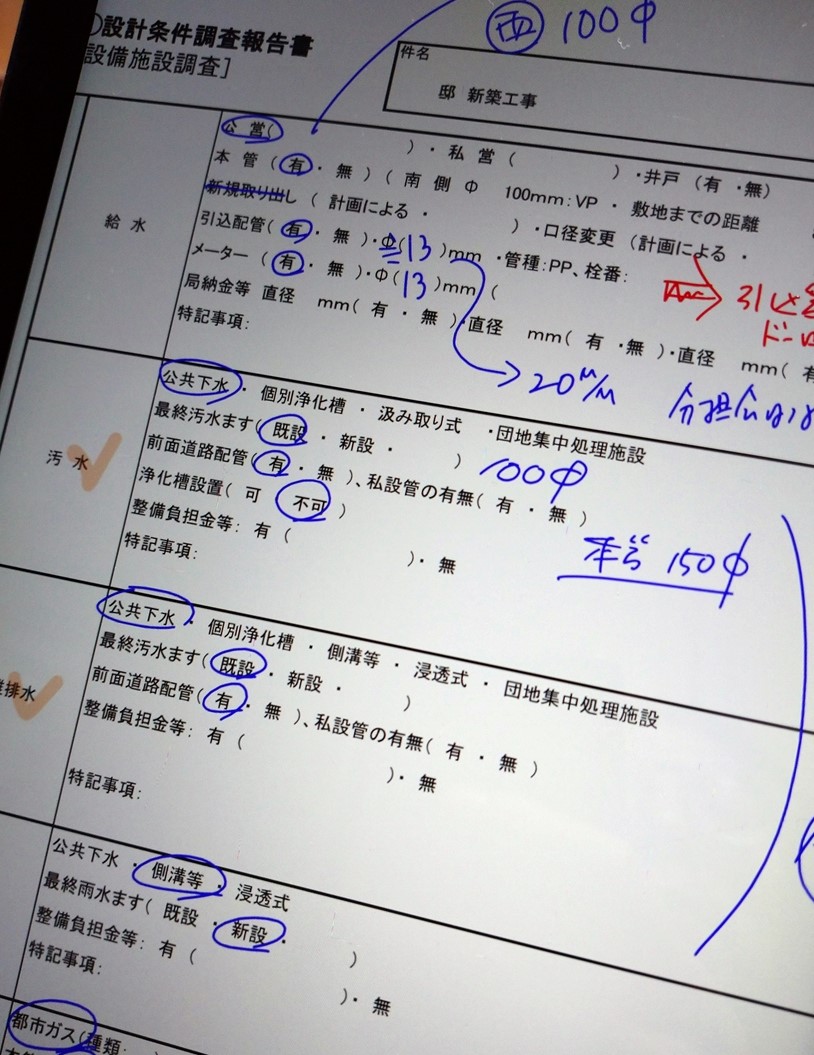 西 100Φ
設計条件調査報告書
設備施設調査]
件名
邸 新築工事
給 水
公 営(　　　)・私 営(　　　)・井戸(有・無)
本 管(有・無)(南 側 Φ 100mm:VP・敷地までの距離
新規取り出し(計画による・　　　)・口径変更(計画による・
引込配管(有・無)・Φ(13)mm・管種:PP、栓番:
メーター(有・無)・Φ(13)mm(
局納金等 直径 mm(有・無)・直径 mm(有・無)・直径 mm(有
特記事項:
20m/m
汚 水
公共下水・個別浄化槽・汲み取り式・団地集中処理施設
最終汚水ます(既設・新設・　　　) 100Φ
前面道路配管(有・無)、私設管の有無(有・無)
浄化槽設置(可 不可)
整備負担金等:有(　　　)・無
特記事項:
150Φ
排水
公共下水・個別浄化槽・側溝等・浸透式・団地集中処理施設
最終汚水ます(既設・新設・　　　)
前面道路配管(有・無)、私設管の有無(有・無)
整備負担金等:有(　　　)・無
特記事項:
公共下水・側溝等・浸透式
最終雨水ます(既設・新設・　　　)
整備負担金等:有(　　　)・無
特記事項:
都市ガス(種類: